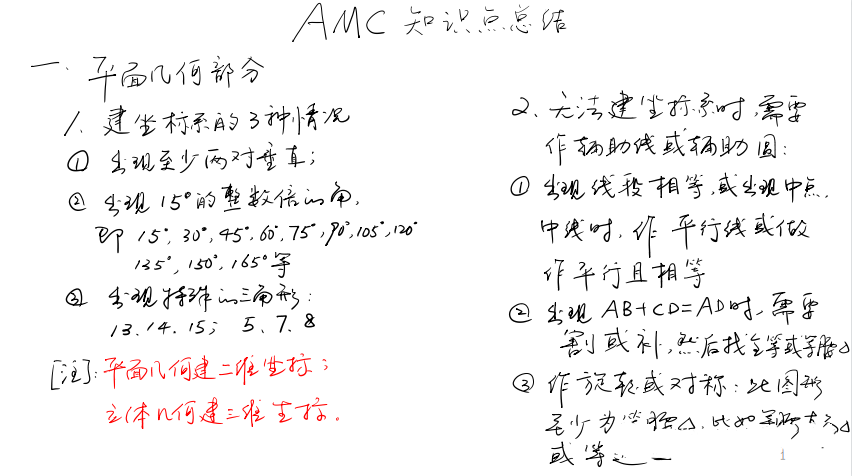 AMC 知识点总结
一. 平面几何部分
1. 建坐标系的3种情况
① 出现至少两对垂直;
② 出现15°的整数倍的角,
即 15°, 30°, 45°, 60°, 75°, 90°, 105°, 120°
135°, 150°, 165°等
③ 出现特殊的三角形:
13. 14. 15; 5、7、8
[注]: 平面几何建二维坐标;
立体几何建三维坐标.
2. 无法建坐标系时,需要
作辅助线或辅助圆:
① 出现线段相等,或出现中点,
中线时, 作 平行线或做
作平行且相等
② 出现 AB+CD=AD时, 需要
割或补, 然后找全等或等腰△
③ 作旋转或对称: 此图形
至少为等腰△, 比如等腰Rt△
或等
1